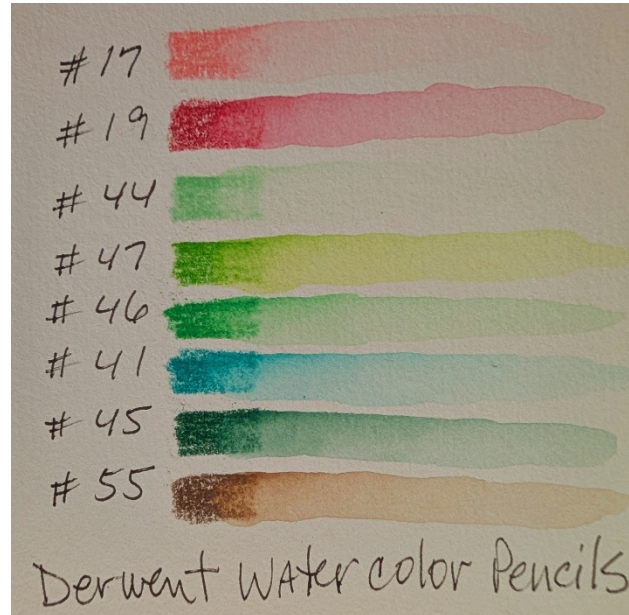 #17
#19
#44
#47
#46
#41
#45
#55
Derwent Watercolor Pencils